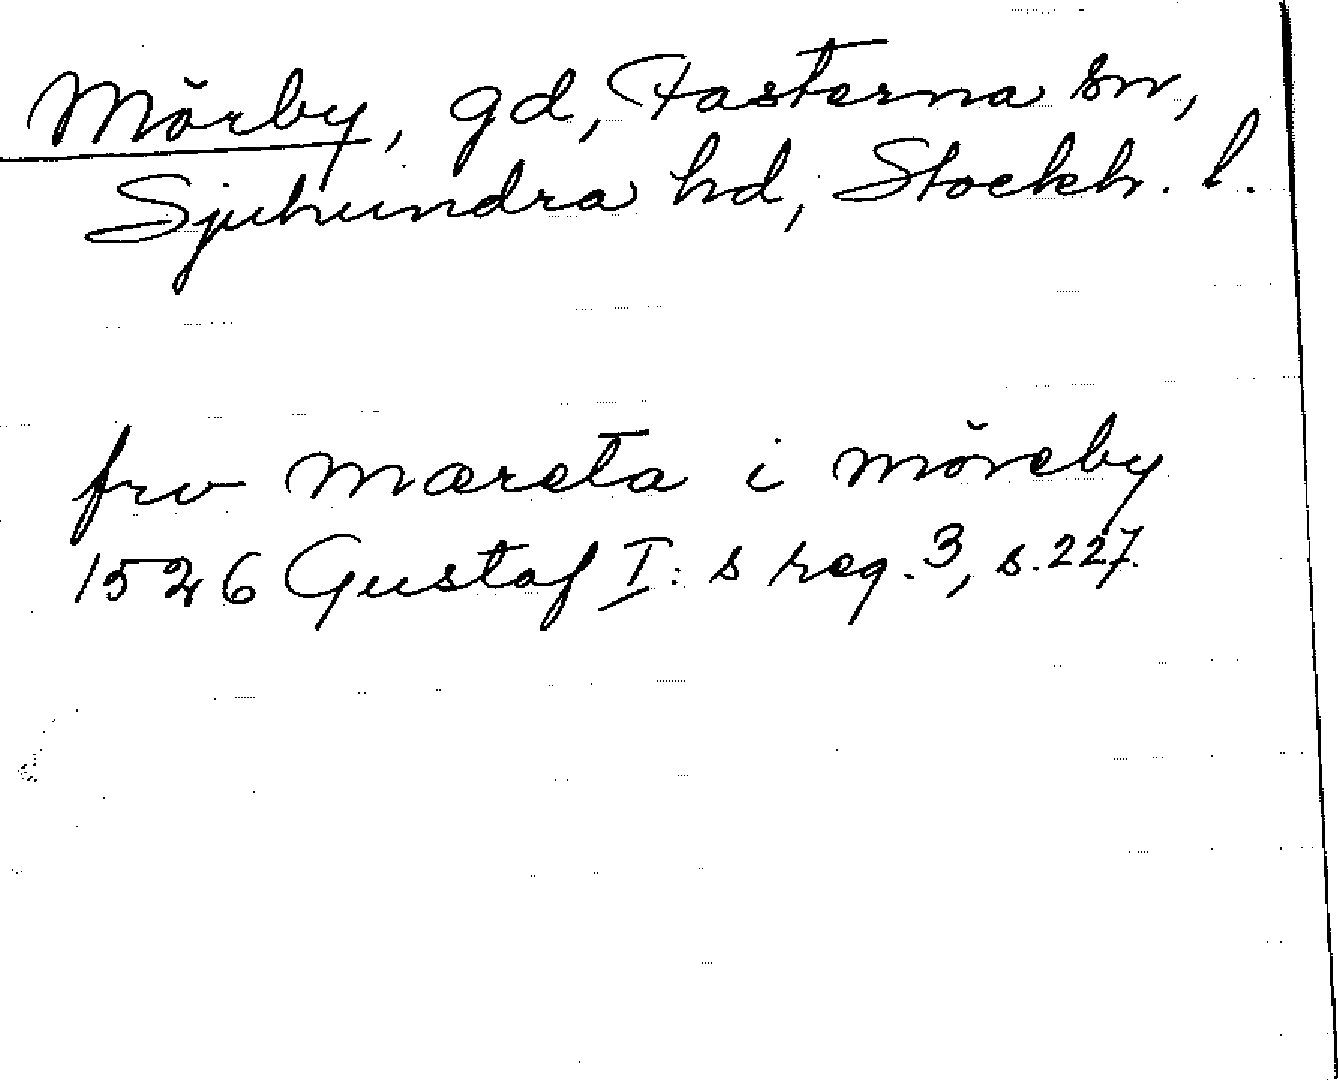 Mörby, gd, Fasterna sn,
Sjuhundra hd, Stockh. l.
frv Mæreta i Möreby
1526 Gustaf I:s reg. 3, s. 227.